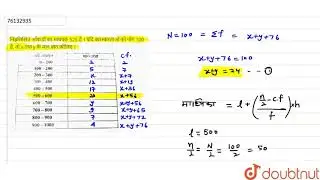 76132935
निम्नलिखित आँकड़ों का माध्यक 525 है। यदि बारंबारताओं का योग 100
है, तो x तथा y के मान ज्ञात कीजिए।
C.f.
0 - 100 2 2
100 - 200 5 7
200 - 300 x x+7
300 - 400 12 x+19
400 - 500 17 x+36
500 - 600 20 x+56
600 - 700 y x+y+56
700 - 800 9 x+y+65
800 - 900 7 x+y+72
900 - 1000 4 x+y+76
N=100 = Σf = x+y+76
x+y+76=100
x+y = 24 -- ①
माध्यिका = l + (n/2 - cf / f) xh
l = 500
n/2 = N/2 = 100/2 = 50
doubtnut